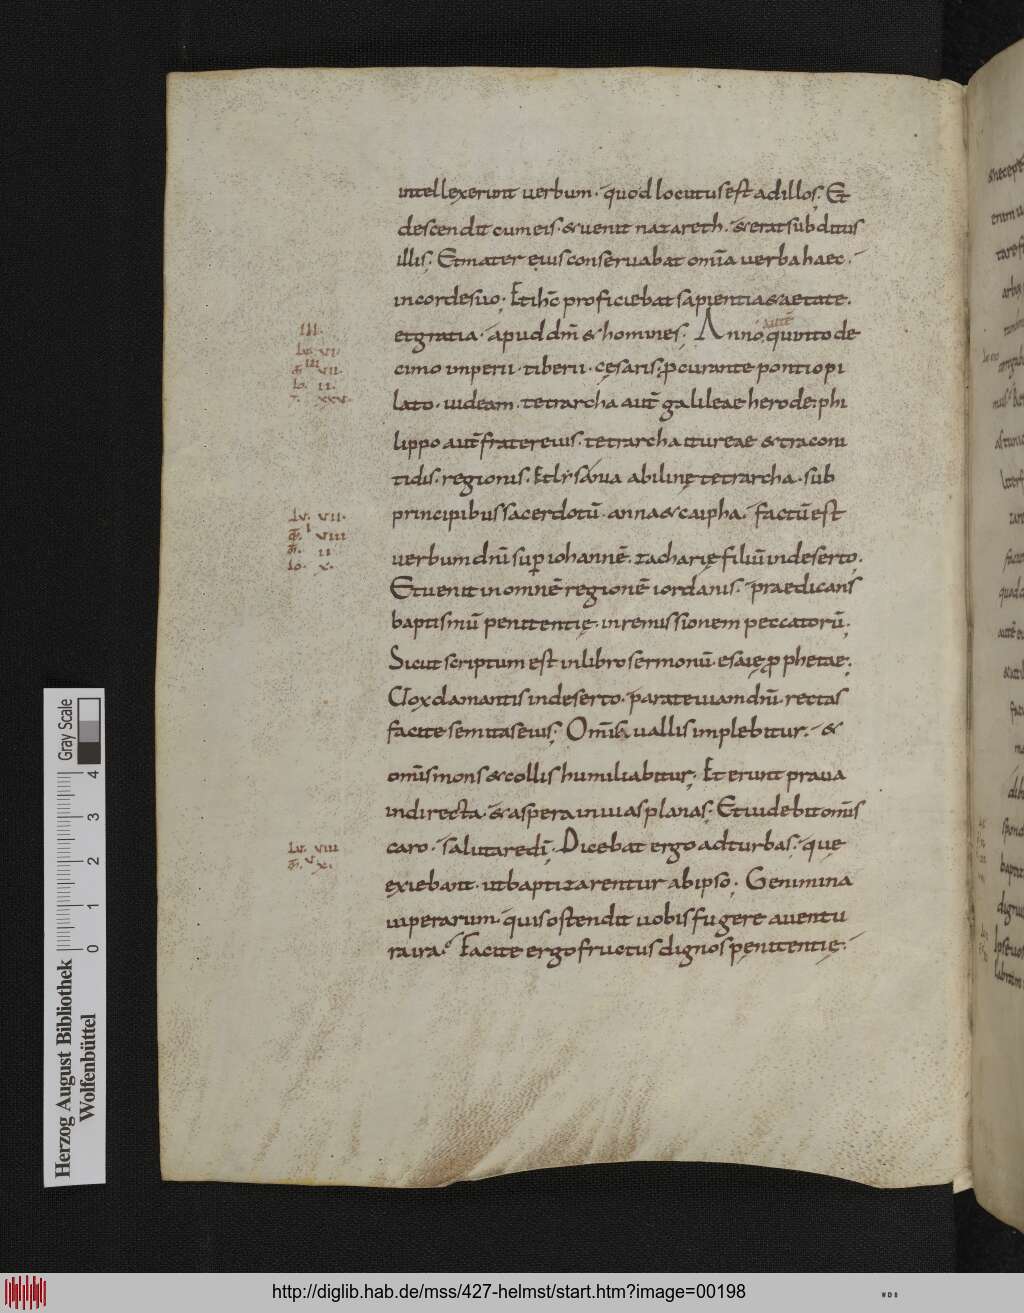 intellexerunt uerbum· quod locutus est ad illos; Et
descendit cum eis· & uenit nazareth· & erat subditus
illis; Et mater eius conseruabat om̄ia uerba haec·
in corde suo; Et ihc̄ proficiebat sapientia & aetate·
et gratia· apud dm̄ & homines; Anno autē quinto de
cimo imperii· tiberii· cęsaris; procurante pontio pi
lato· iudeam· tetrarcha aut̄ galileae herode; phi
lippo aut̄ fratre eius· tetrarcha itureae & traconi
tidis· regionis· Et lysania abilinę tetrarcha· sub
principibus sacerdotū· anna & caipha· factū est
uerbum dn̄i sup iohannē· zacharię filiū in deserto;
Et uenit in omnē regionē iordanis· praedicans
baptismū penitentię· in remissionem peccatorū;
Sicut scriptum est in libro sermonū· esaię prophetae;
Uox clamantis in deserto· parate uiam dn̄i· rectas
facite semitas eius; Om̄is uallis implebitur· &
om̄is mons & collis humiliabitur; Et erunt praua
in directa· & aspera in uias planas; Et uidebit om̄is
caro· salutare dī; Dicebat ergo ad turbas; quę
exiebant· ut baptizarentur ab ipso· Genimina
uiperarum· quis ostendit uobis fugere a uentu
ra ira· Facite ergo fructus dignos pęnitentię·
III·
Lu· VI·
VII·
Io· II·
XXV·
Lu· VII·
VIII
II
Io· X·
Lu· VIII
V X·
Herzog August Bibliothek
Wolfenbüttel
Gray Scale
0 1 2 3 4
http://diglib.hab.de/mss/427-helmst/start.htm?image=00198